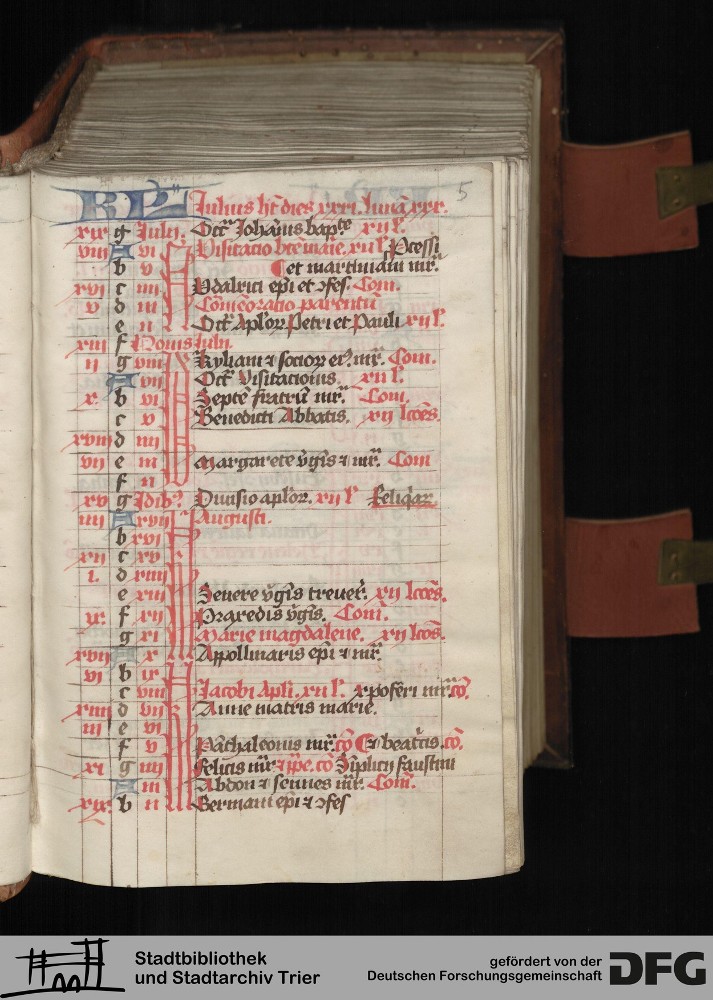 KL Julius ht dies xxxi. Luna xxx. 5
xix g Julii. Oct' Johanis bapte xii l'.
viii A vi Visitacio bte marie. xii l' Pcessi
b v et martiniani mr'.
xvi c iiii Udalrici epi et ꝯfes. Com.
v d iii Comeoratio parentu
e ii Oct' Aplor Petri et Pauli xii l'.
xiii f Nonis Julii.
ii g viii Kyliani ⁊ socior ei' mr'. Com.
A vii Oct' Visitacionis. xii l'.
x b vi Septe fratru mr'. Com.
c v Benedicti Abbatis. xii lcoes.
xviii d iiii
vii e iii Margarete v'gis ⁊ mr'. Com
f ii
xv g Idib' Divisio aplor. xii l' Reliq'ar
iiii A xvii Augusti.
b xvi
xii c xv
i. d xiiii
e xiii Severe v'gis trever'. xii lcoes.
ix f xii Praxedis v'gis. Com.
g xi Marie magdalene. xii lcoes.
xvii A x Appollinaris epi ⁊ mr'
vi b ix
c viii Jacobi Apli. xii l'. xpoferi mr' co.
xiiii d vii Anne matris marie.
iii e vi
f v Pathaleonis mr'. co Et beatcis. co.
xi g iiii Felicis mr' ⁊ ipe. co Siplicii faustini
A iii Abdon ⁊ sennes mr'. Com.
xix b ii Germani epi ⁊ ꝯfes
Stadtbibliothek
und Stadtarchiv Trier
gefördert von der
Deutschen Forschungsgemeinschaft
DFG